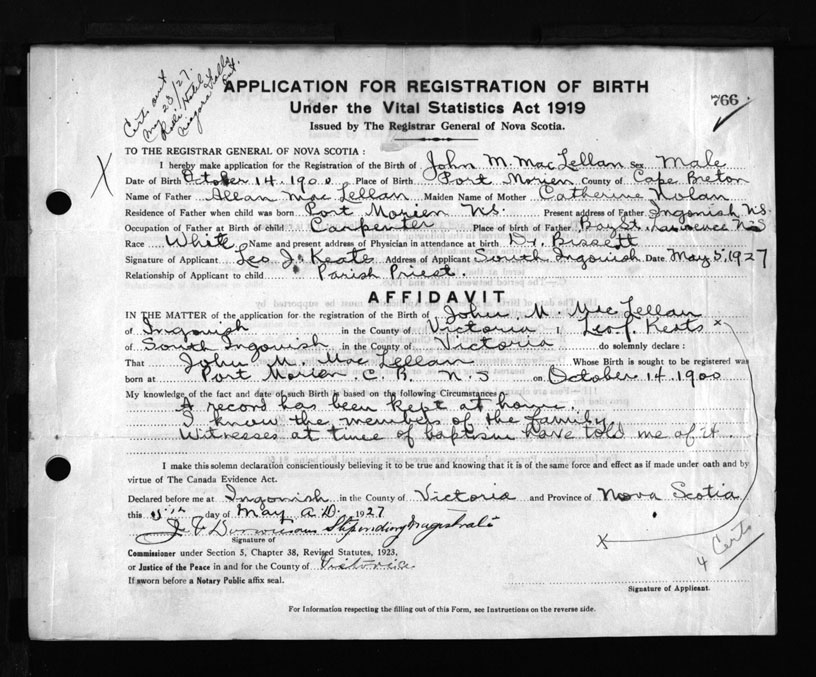 Certs sent
May 23/27.
Hotel
Niagara Falls
Ont.
APPLICATION FOR REGISTRATION OF BIRTH
766
Under the Vital Statistics Act 1919
Issued by The Registrar General of Nova Scotia.
TO THE REGISTRAR GENERAL OF NOVA SCOTIA :
X
I hereby make application for the Registration of the Birth of John M. MacLellan Sex Male
Date of Birth October 14. 1900 Place of Birth Port Morien County of Cape Breton
Name of Father Allan MacLellan Maiden Name of Mother Catherine Nolan
Residence of Father when child was born Port Morien N.S. Present address of Father Ingonish N.S.
Occupation of Father at Birth of child Carpenter Place of birth of Father Bay St. Lawrence N.S
Race White Name and present address of Physician in attendance at birth Dr. Bissett
Signature of Applicant Leo J. Keats Address of Applicant South Ingonish Date May 5, 1927
Relationship of Applicant to child Parish Priest.
AFFIDAVIT
IN THE MATTER of the application for the registration of the Birth of John M. MacLellan
of Ingonish in the County of Victoria I, Leo J. Keats x
of South Ingonish in the County of Victoria do solemnly declare :
That John M. MacLellan Whose Birth is sought to be registered was
born at Port Morien C. B. N. S on October 14. 1900
My knowledge of the fact and date of such Birth is based on the following Circumstances
A record has been kept at home.
I know the members of the family
Witnesses at time of baptism have told me of it.
I make this solemn declaration conscientiously believing it to be true and knowing that it is of the same force and effect as if made under oath and by
virtue of The Canada Evidence Act.
Declared before me at Ingonish in the County of Victoria and Province of Nova Scotia
this 5th day of May A.D. 1927
Stipendiary Magistrate
Signature of
x
4 Certs
Commissioner under Section 5, Chapter 38, Revised Statutes, 1923,
or Justice of the Peace in and for the County of Victoria
If sworn before a Notary Public affix seal.
Signature of Applicant.
For Information respecting the filling out of this Form, see Instructions on the reverse side.